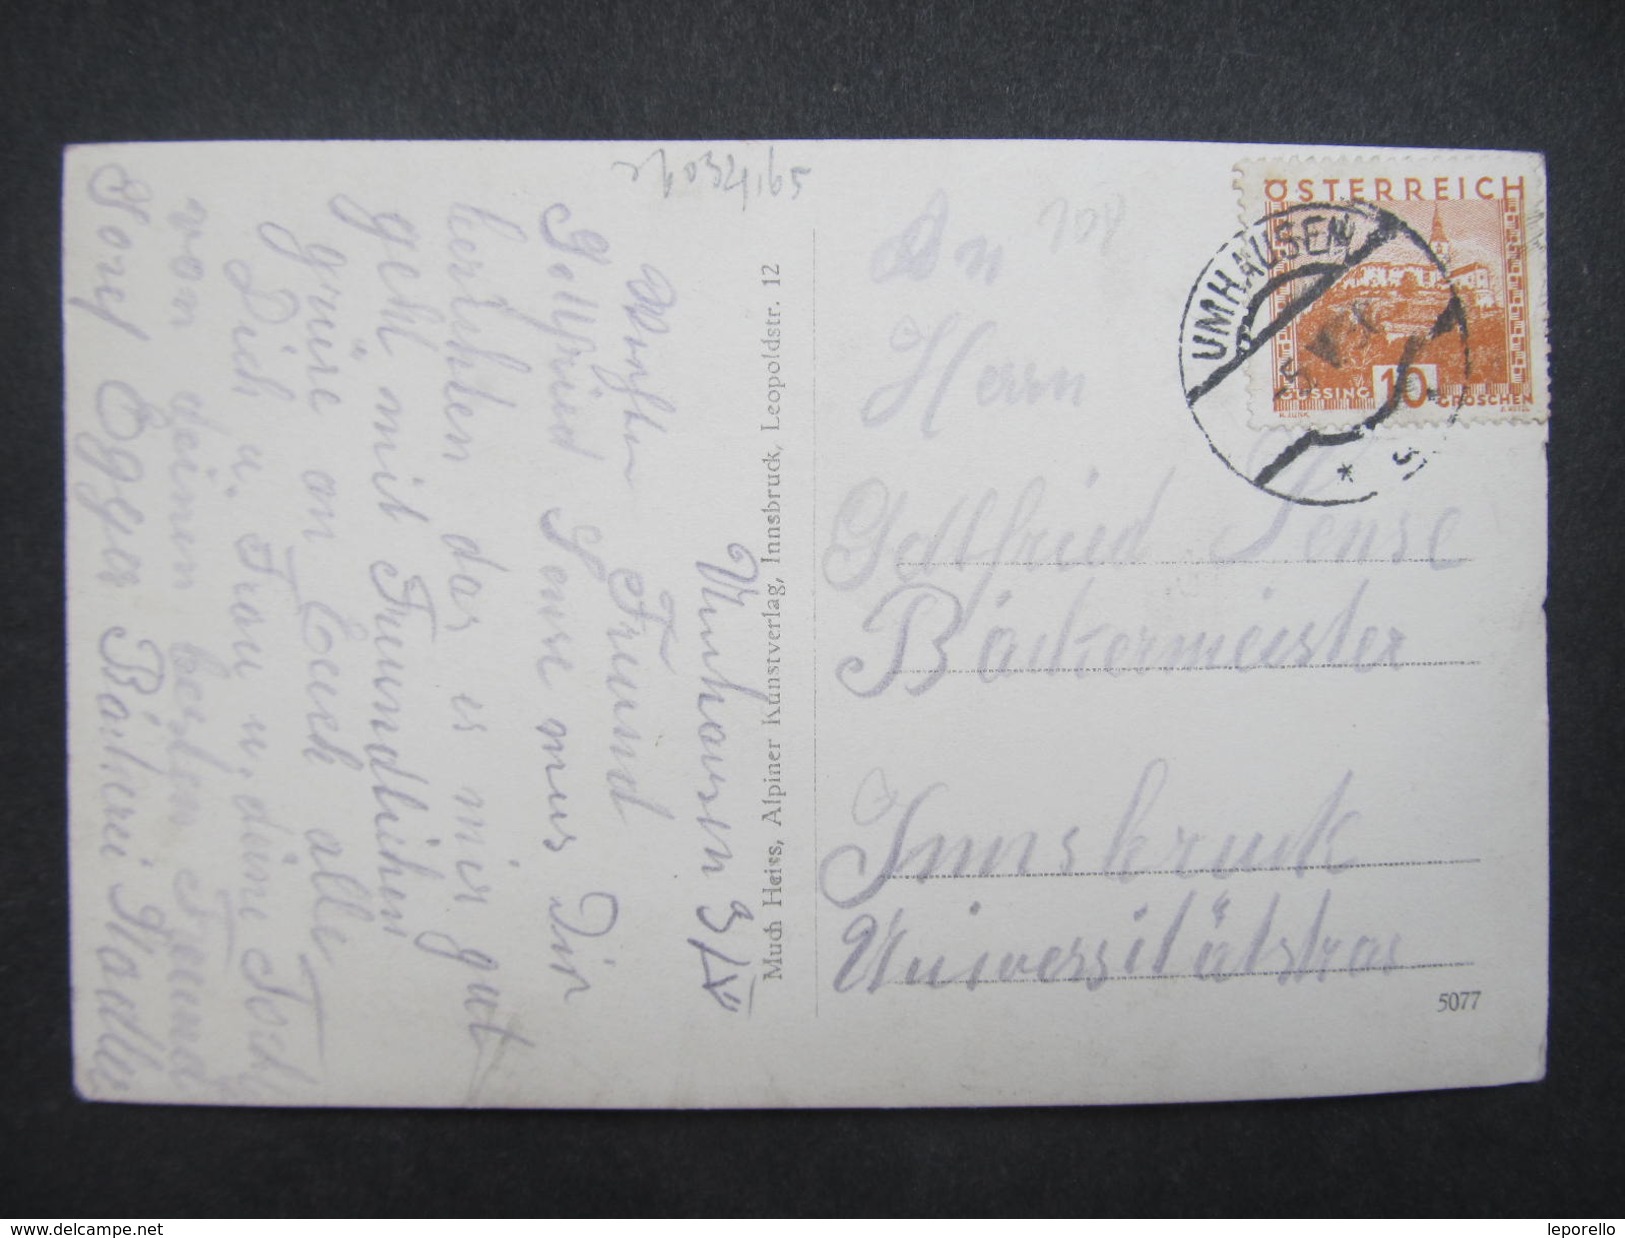 Umhausen 3/IV
Werther Freund
Gottfried Sense mus Dir
berichten das es mir gut
geht mit Freundlichen
grüße an Euch alle
Dich u. Frau u. deine Toch
von deinem besten Freund
Josef Egger Bäckerei Stadler
Much Heiss, Alpiner Kunstverlag, Innsbruck, Leopoldstr. 12
An
108
Herrn
Gottfried Sense
Bäckermeister
Innsbruck
Universitätstras
5077
ÖSTERREICH
GÜSSING 10 GROSCHEN
UMHAUSEN
www.delcampe.net
leporello